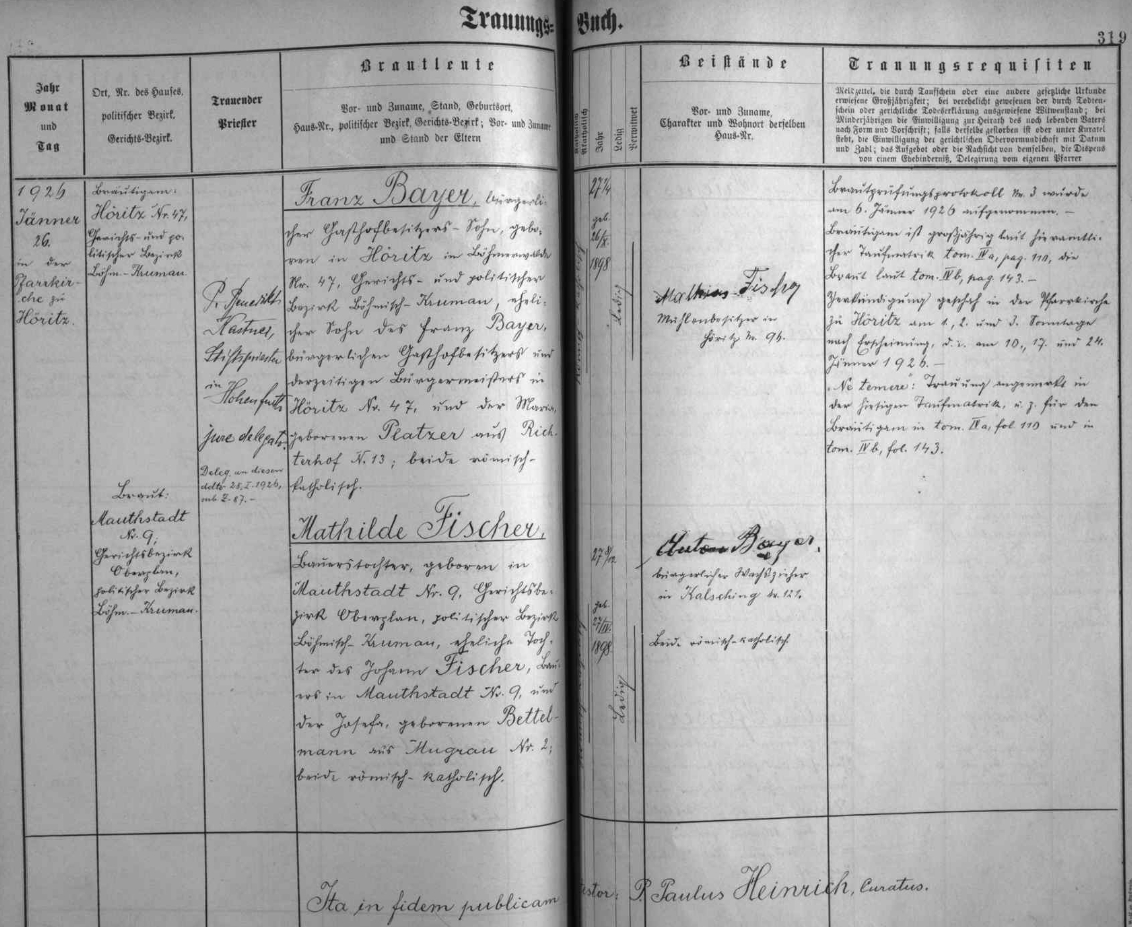 Trauungs-Buch.
319
Jahr
Monat
und
Tag
Ort, Nr. des Hauses,
politischer Bezirk,
Gerichts-Bezirk.
Trauender
Priester
Brautleute
Vor- und Zuname, Stand, Geburtsort,
Haus-Nr., politischer Bezirk, Gerichts-Bezirk; Vor- und Zuname
und Stand der Eltern
Katholisch
Akatholisch
Jahr
Ledig
Verwitwet
Beistände
Vor- und Zuname,
Charakter und Wohnort derselben
Haus-Nr.
Trauungsrequisiten
Meldzettel, die durch Taufschein oder eine andere gesetzliche Urkunde
erwiesene Großjährigkeit; bei verehelicht gewesenen der durch Todten-
schein oder gerichtliche Todeserklärung ausgewiesene Witwenstand; bei
Minderjährigen die Einwilligung zur Heirath des noch lebenden Vaters
nach Form und Vorschrift; falls derselbe gestorben ist oder unter Kuratel
steht, die Einwilligung der gerichtlichen Obervormundschaft mit Datum
und Zahl; das Aufgebot oder die Nachsicht von demselben, die Dispens
von einem Ehehinderniß, Delegirung vom eigenen Pfarrer
1926
Jänner
26.
in der
Pfarrkir-
che zu
Höritz.
Bräutigam:
Höritz Nr. 47,
Gerichts- und po-
litischer Bezirk
Böhm.-Krumau
Braut:
Mauthstadt
Nr. 9,
Gerichtsbezirk
Oberplan,
politischer Bezirk
Böhm.-Krumau.
P. Benedikt
Kastner,
Stiftspriester
in
Hohenfurth
jure delegato.
Deleg. an diesen
ddto 25. I. 1926,
sub Z. 87.-
Franz Bayer, bürgerli-
cher Gasthofbesitzers-Sohn, gebo-
ren in Höritz in Böhmerwalde
Nr. 47, Gerichts- und politischer
Bezirk Böhmisch-Krumau, eheli-
cher Sohn des Franz Bayer,
bürgerlichen Gasthofbesitzers und
derzeitigen Bürgermeisters in
Höritz Nr. 47, und der Maria,
geborenen Platzer aus Rich-
terhof N. 13; beide römisch-
katholisch.
Mathilde Fischer,
Bauerstochter, geboren in
Mauthstadt Nr. 9, Gerichtsbe-
zirk Oberplan, politischer Bezirk
Böhmisch-Krumau, eheliche Toch-
ter des Johann Fischer, Bau-
ers in Mauthstadt Nr. 9, und
der Josefa, geborenen Bettel-
mann aus Mugrau Nr. 2;
beide römisch-katholisch.
geb.
1898
Ledig
geb.
1898
Ledig
Mathias
Mühlenbesitzer in
Höritz Nr. 96.
Anton Bayer,
bürgerlicher Wachszieher
in Kalsching
Beide römisch-katholisch
Brautprüfungsprotokoll Nr. 3 wurde
am 6. Jänner 1926 aufgenommen. -
Bräutigam ist großjährig laut hieramtli-
cher Taufmatrik tom. IVa, pag. 110, die
Braut laut tom. IVb, pag. 143. -
Verkündigung geschah in der Pfarrkirche
zu Höritz am 1., 2. und 3. Sonntage
nach Erscheinung, d. i. am 10., 17. und 24.
Jänner 1926. -
"Ne temere": Trauung angemerkt in
der hiesigen Taufmatrik, u. z. für den
Bräutigam in tom. IVa, fol. 110 und in
tom. IVb, fol. 143.
Ita in fidem publicam
P. Paulus Heinrich, Curatus.